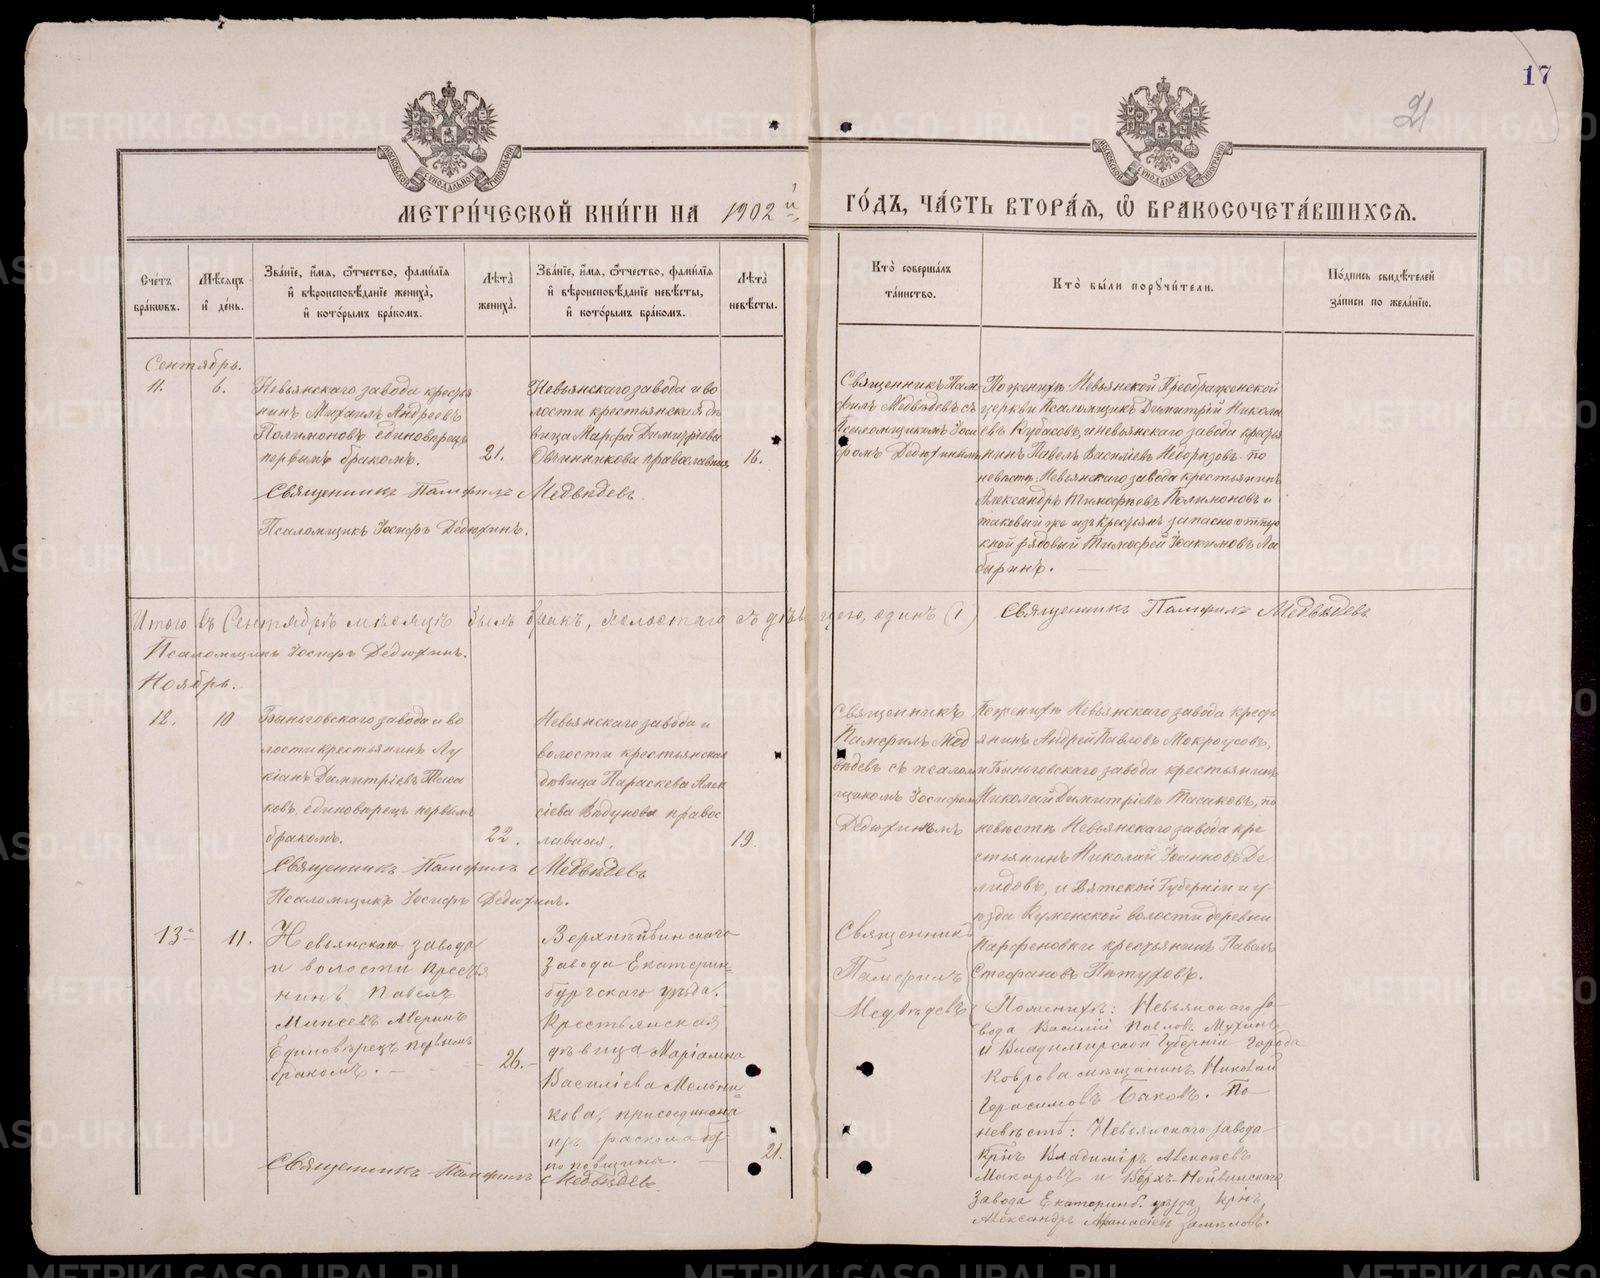 17
21
МЕТРИ́ЧЕСКОЙ КНИ́ГИ НА 1902 й
ГО́ДЪ, ЧА́СТЬ ВТОРА́Я, Ѡ БРАКОСОЧЕТА́ВШИХСЯ.
Сче́тъ бра́ковъ.
Мѣ́сяцъ и де́нь.
Зва́нїе, и́мя, ѻ́тчество, фами́лїя и вѣроисповѣ́данїе жениха̀, и кото́рымъ бра́комъ.
Лѣ́та жениха̀.
Зва́нїе, и́мя, ѻ́тчество, фами́лїя и вѣроисповѣ́данїе невѣ́сты, и кото́рымъ бра́комъ.
Лѣ́та невѣ́сты.
Кто̀ соверша́лъ та́инство.
Кто̀ бы́ли поручи́тели.
По́дпись свидѣ́телей за́писи по жела́нїю.
Сентябрь.
11.
6.
Невьянскаго завода кресть
нинъ Михаилъ Андреевъ
Полимоновъ единоверецъ
первымъ бракомъ.
21.
Невьянскаго завода и во
лости крестьянская дѣ
вица Марфа Димитріева
Овчинникова православная
16.
Священникъ Пам
филъ Медвѣдевъ съ
Псаломщикомъ Іоси
фомъ Дедюхинымъ
По женихѣ: Невьянской Преображенской
церкви Псаломщикъ Димитрій Никола
евъ Кубасовъ, и невьянскаго завода кресть
нинъ Павелъ Васильевъ Недорѣзовъ. по
невѣстѣ Невьянскаго завода крестьянинъ
Александръ Тимофѣевъ Полимоновъ и
таковый же изъ крестьянъ запасноотпу
скной рядовый Тимофей Іоакимовъ Ла
быринъ.
Священникъ Памфилъ Медвѣдевъ.
Псаломщикъ Іосифъ Дедюхинъ.
Итого въ Сентябрѣ мѣсяцѣ былъ бракъ, холостаго съ дѣвицею, одинъ (1)
Священникъ Памфилъ Медвѣдевъ
Псаломщикъ Іосифъ Дедюхинъ.
Ноябрь.
12.
10
Быньговскаго завода и во
лости крестьянинъ Лу
кіанъ Димитріевъ Таса
ковъ, единоверецъ первымъ
бракомъ.
22.
Невьянскаго завода и
волости крестьянская
дѣвица Параскева Алек
сіева Вѣдунова правос
лавная.
19.
Священникъ
Памфилъ Мед
вѣдевъ съ псалом
щикомъ Іосифомъ
Дедюхинымъ
По женихѣ Невьянскаго завода кресть
янинъ Андрей Павловъ Мокроусовъ,
и Быньговскаго завода крестьянинъ
Николай Димитріевъ Тасаковъ, по
невѣстѣ Невьянскаго завода кре
стьянинъ Николай Іоанновъ Де
мидовъ, и Вятской Губерніи и у
ѣзда Куменской волости деревни
Парфеновки крестьянинъ Павелъ
Стефановъ Пѣтуховъ.
Священникъ Памфилъ Медвѣдевъ
Псаломщикъ Іосифъ Дедюхинъ.
13
11.
Невьянскаго завода
и волости кресть
нинъ Павелъ
Моисеевъ Аверинъ
Единовѣрецъ первымъ
бракомъ.
26.
Верхнейвинскаго
завода Екатерин=
бургскаго уѣзда.
крестьянская
дѣвица Маріамна
Василіева Мельни
кова, присоединена
изъ раскола бѣг
лопоповщины.
21.
Священникъ
Памфилъ
Медвѣдевъ
По женихѣ: Невьянскаго за-
вода Василій Павлов. Мухинъ
и Владимірской Губерніи города
Коврова мѣщанинъ Николай
Герасимовъ Баковъ. По
невѣстѣ: Невьянскаго завода
крнъ Владиміръ Алексѣевъ
Макаровъ и Верхъ-Нейвинскаго
завода Екатеринб. уѣзда крнъ
Александръ Афанасіевъ
Священникъ Памфилъ Медвѣдевъ.